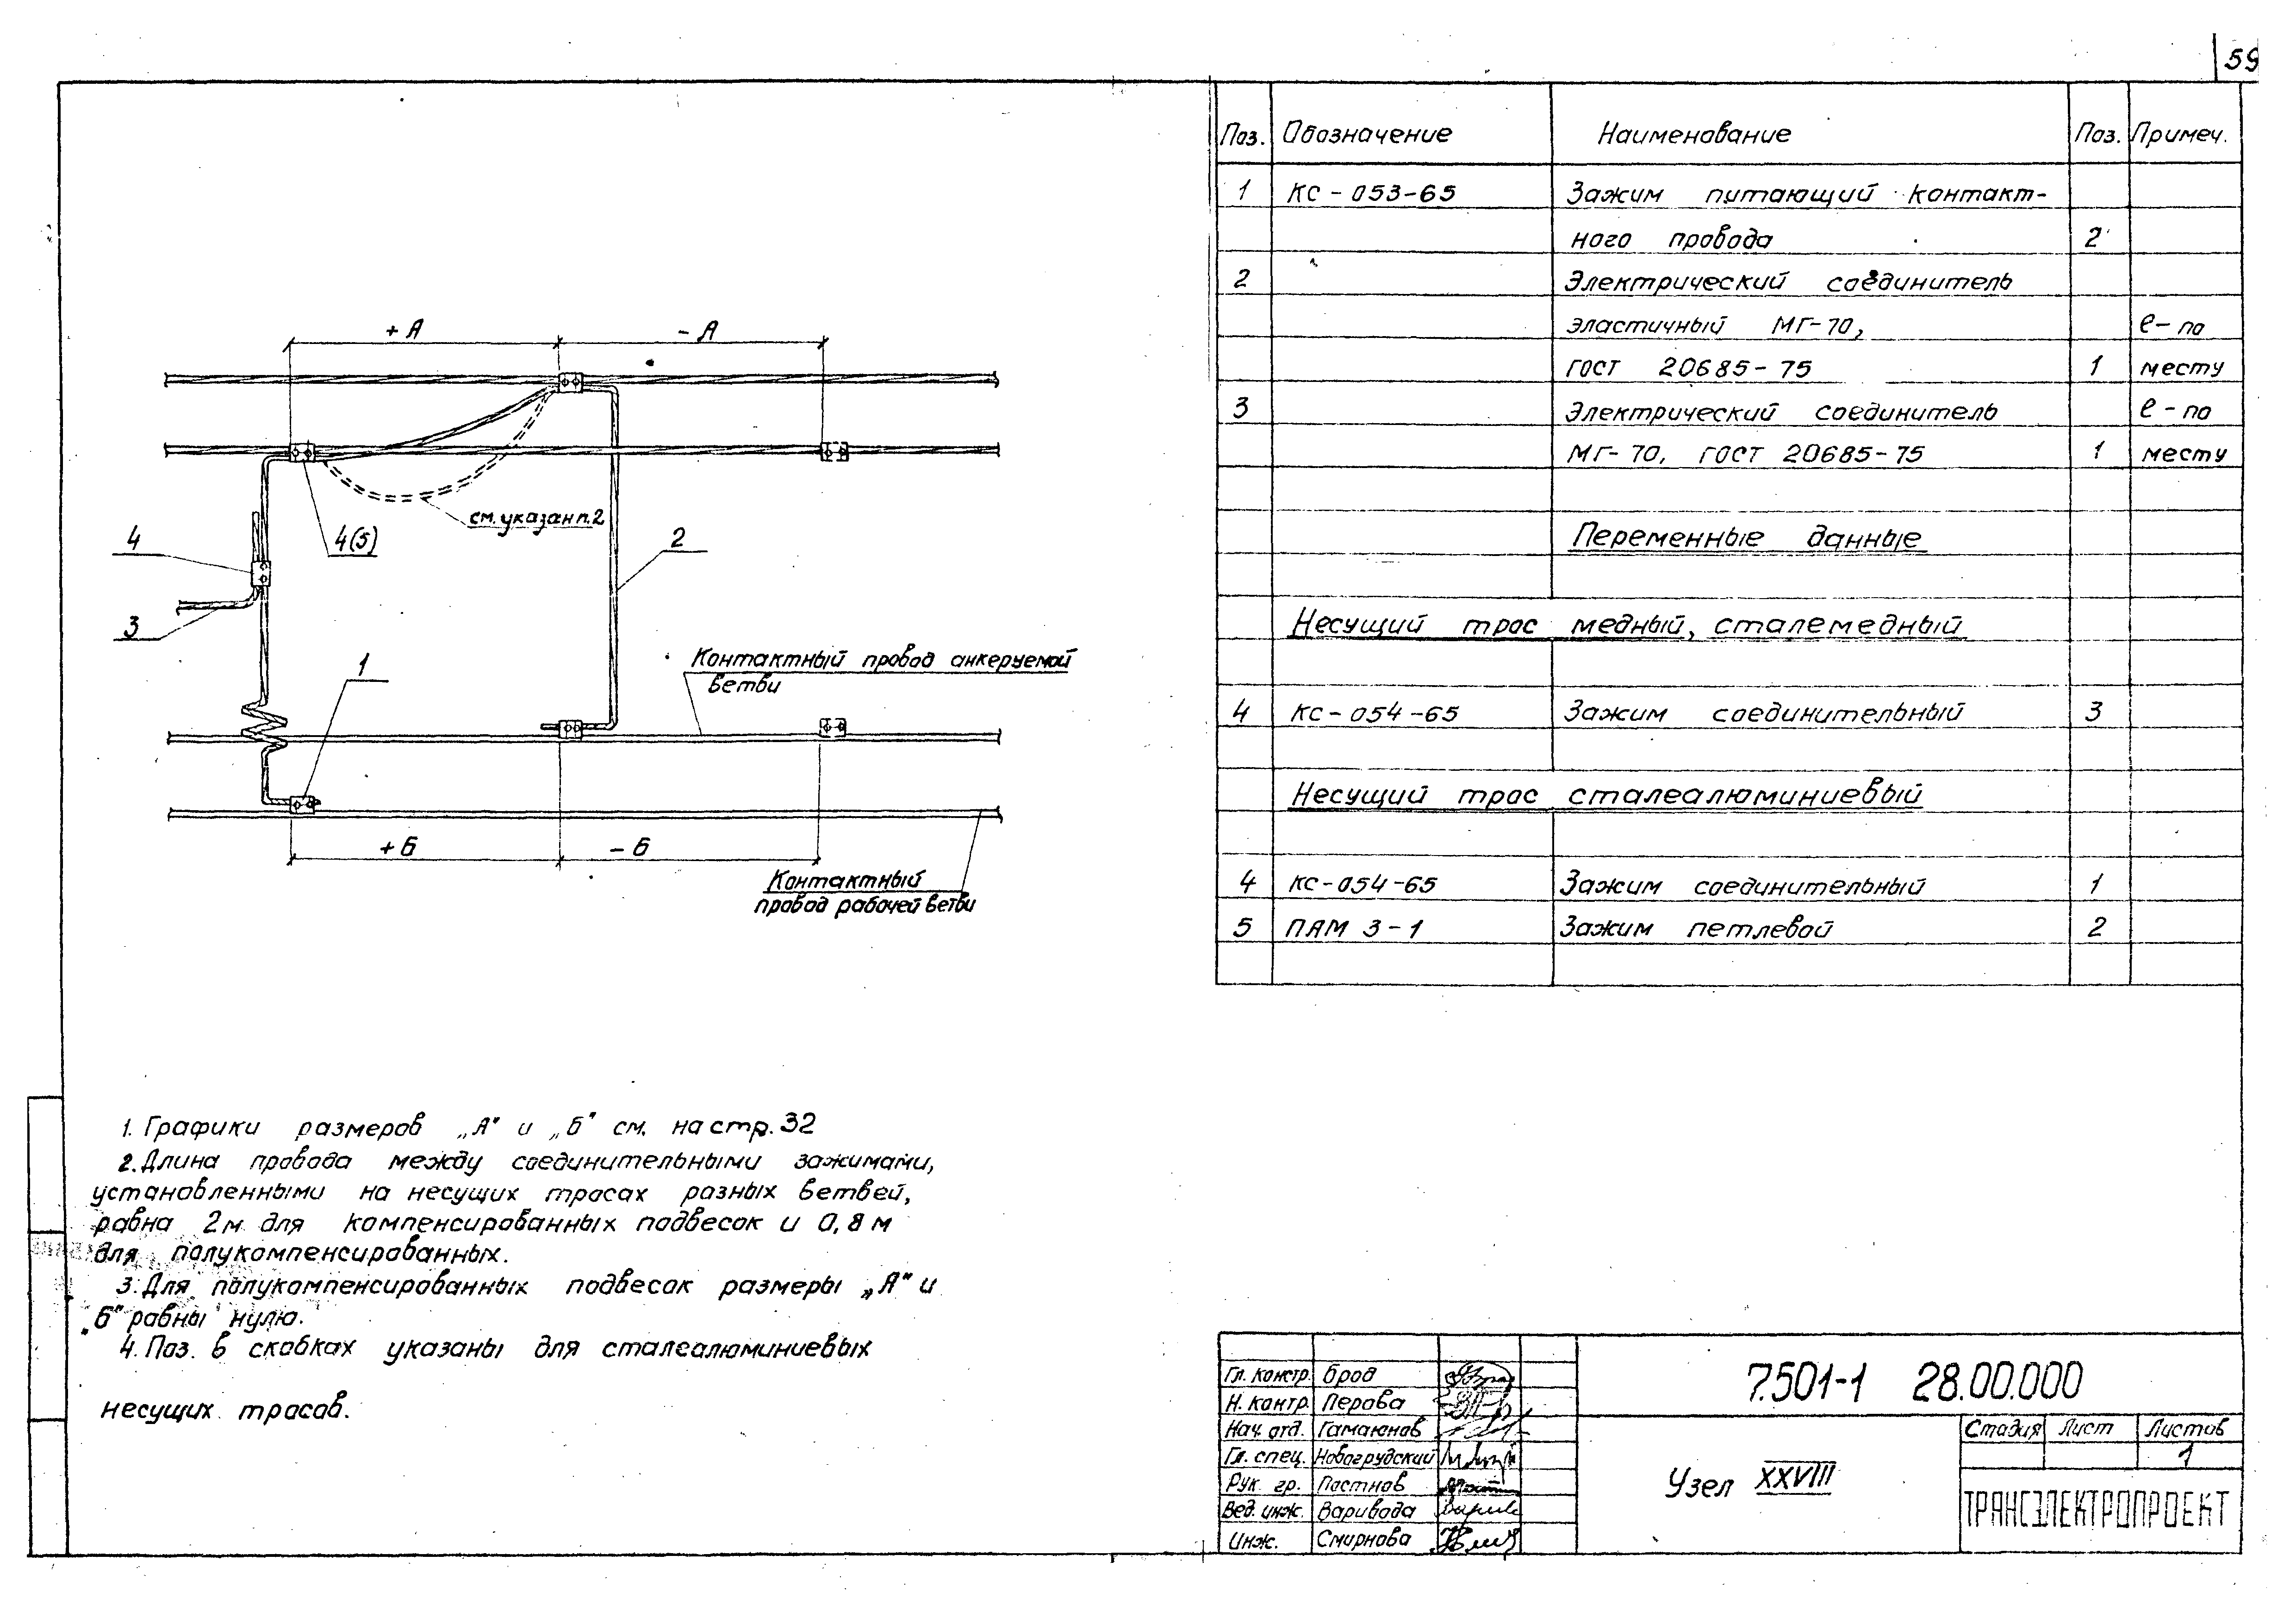 59
+ А
- А
см. указан п. 2
4
4(5)
2
3
1
Контактный провод анкеруемой
ветви
+ Б
- Б
Контактный
провод рабочей ветви
1. Графики размеров „А" и „Б" см. на стр. 32
2. Длина провода между соединительными зажимами,
установленными на несущих тросах разных ветвей,
равна 2м для компенсированных подвесок и 0,8 м
для полукомпенсированных.
3. Для полукомпенсированных подвесок размеры „А" и
„Б" равны нулю.
4. Поз. в скобках указаны для сталеалюминиевых
несущих тросов.
Поз. Обозначение Наименование Поз. Примеч.
1 КС-053-65 Зажим питающий контакт-
ного провода 2
2 Электрический соединитель
эластичный МГ-70, ℓ-по
ГОСТ 20685-75 1 месту
3 Электрический соединитель ℓ-по
МГ-70, ГОСТ 20685-75 1 месту
Переменные данные
Несущий трос медный, сталемедный
4 КС-054-65 Зажим соединительный 3
Несущий трос сталеалюминиевый
4 КС-054-65 Зажим соединительный 1
5 ПАМ 3-1 Зажим петлевой 2
Гл. констр. Брод
Н. контр. Перова
Нач. отд. Гамаюнов
Гл. спец. Новогрудский
Рук. гр. Постнов
Вед. инж. Варивода
Инж. Смирнова
7.501-1 28.00.000
Узел XXVIII
Стадия Лист Листов
1
ТРАНСЭЛЕКТРОПРОЕКТ